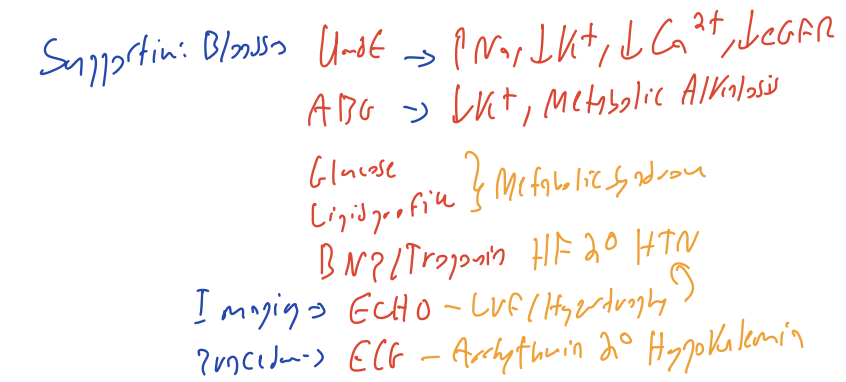 Supportin: Bloods UandE → ↑Na, ↓K+, ↓Ca2+, ↓eGFR
ABG → ↓K+, Metabolic Alkalosis
Glucose
Lipid profile } Metabolic Syndrome
BNP/Troponin HF 2° HTN
Imaging → ECHO - LVF/Hypertrophy
ECG - Arrhythmia 2° Hypokalemia